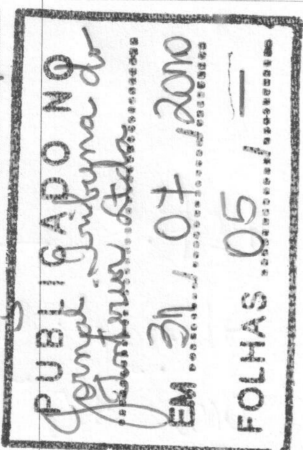 PUBLICADO NO
Jornal Tribuna do
Ltda
EM 31 / 07 / 2010
FOLHAS 05 / —